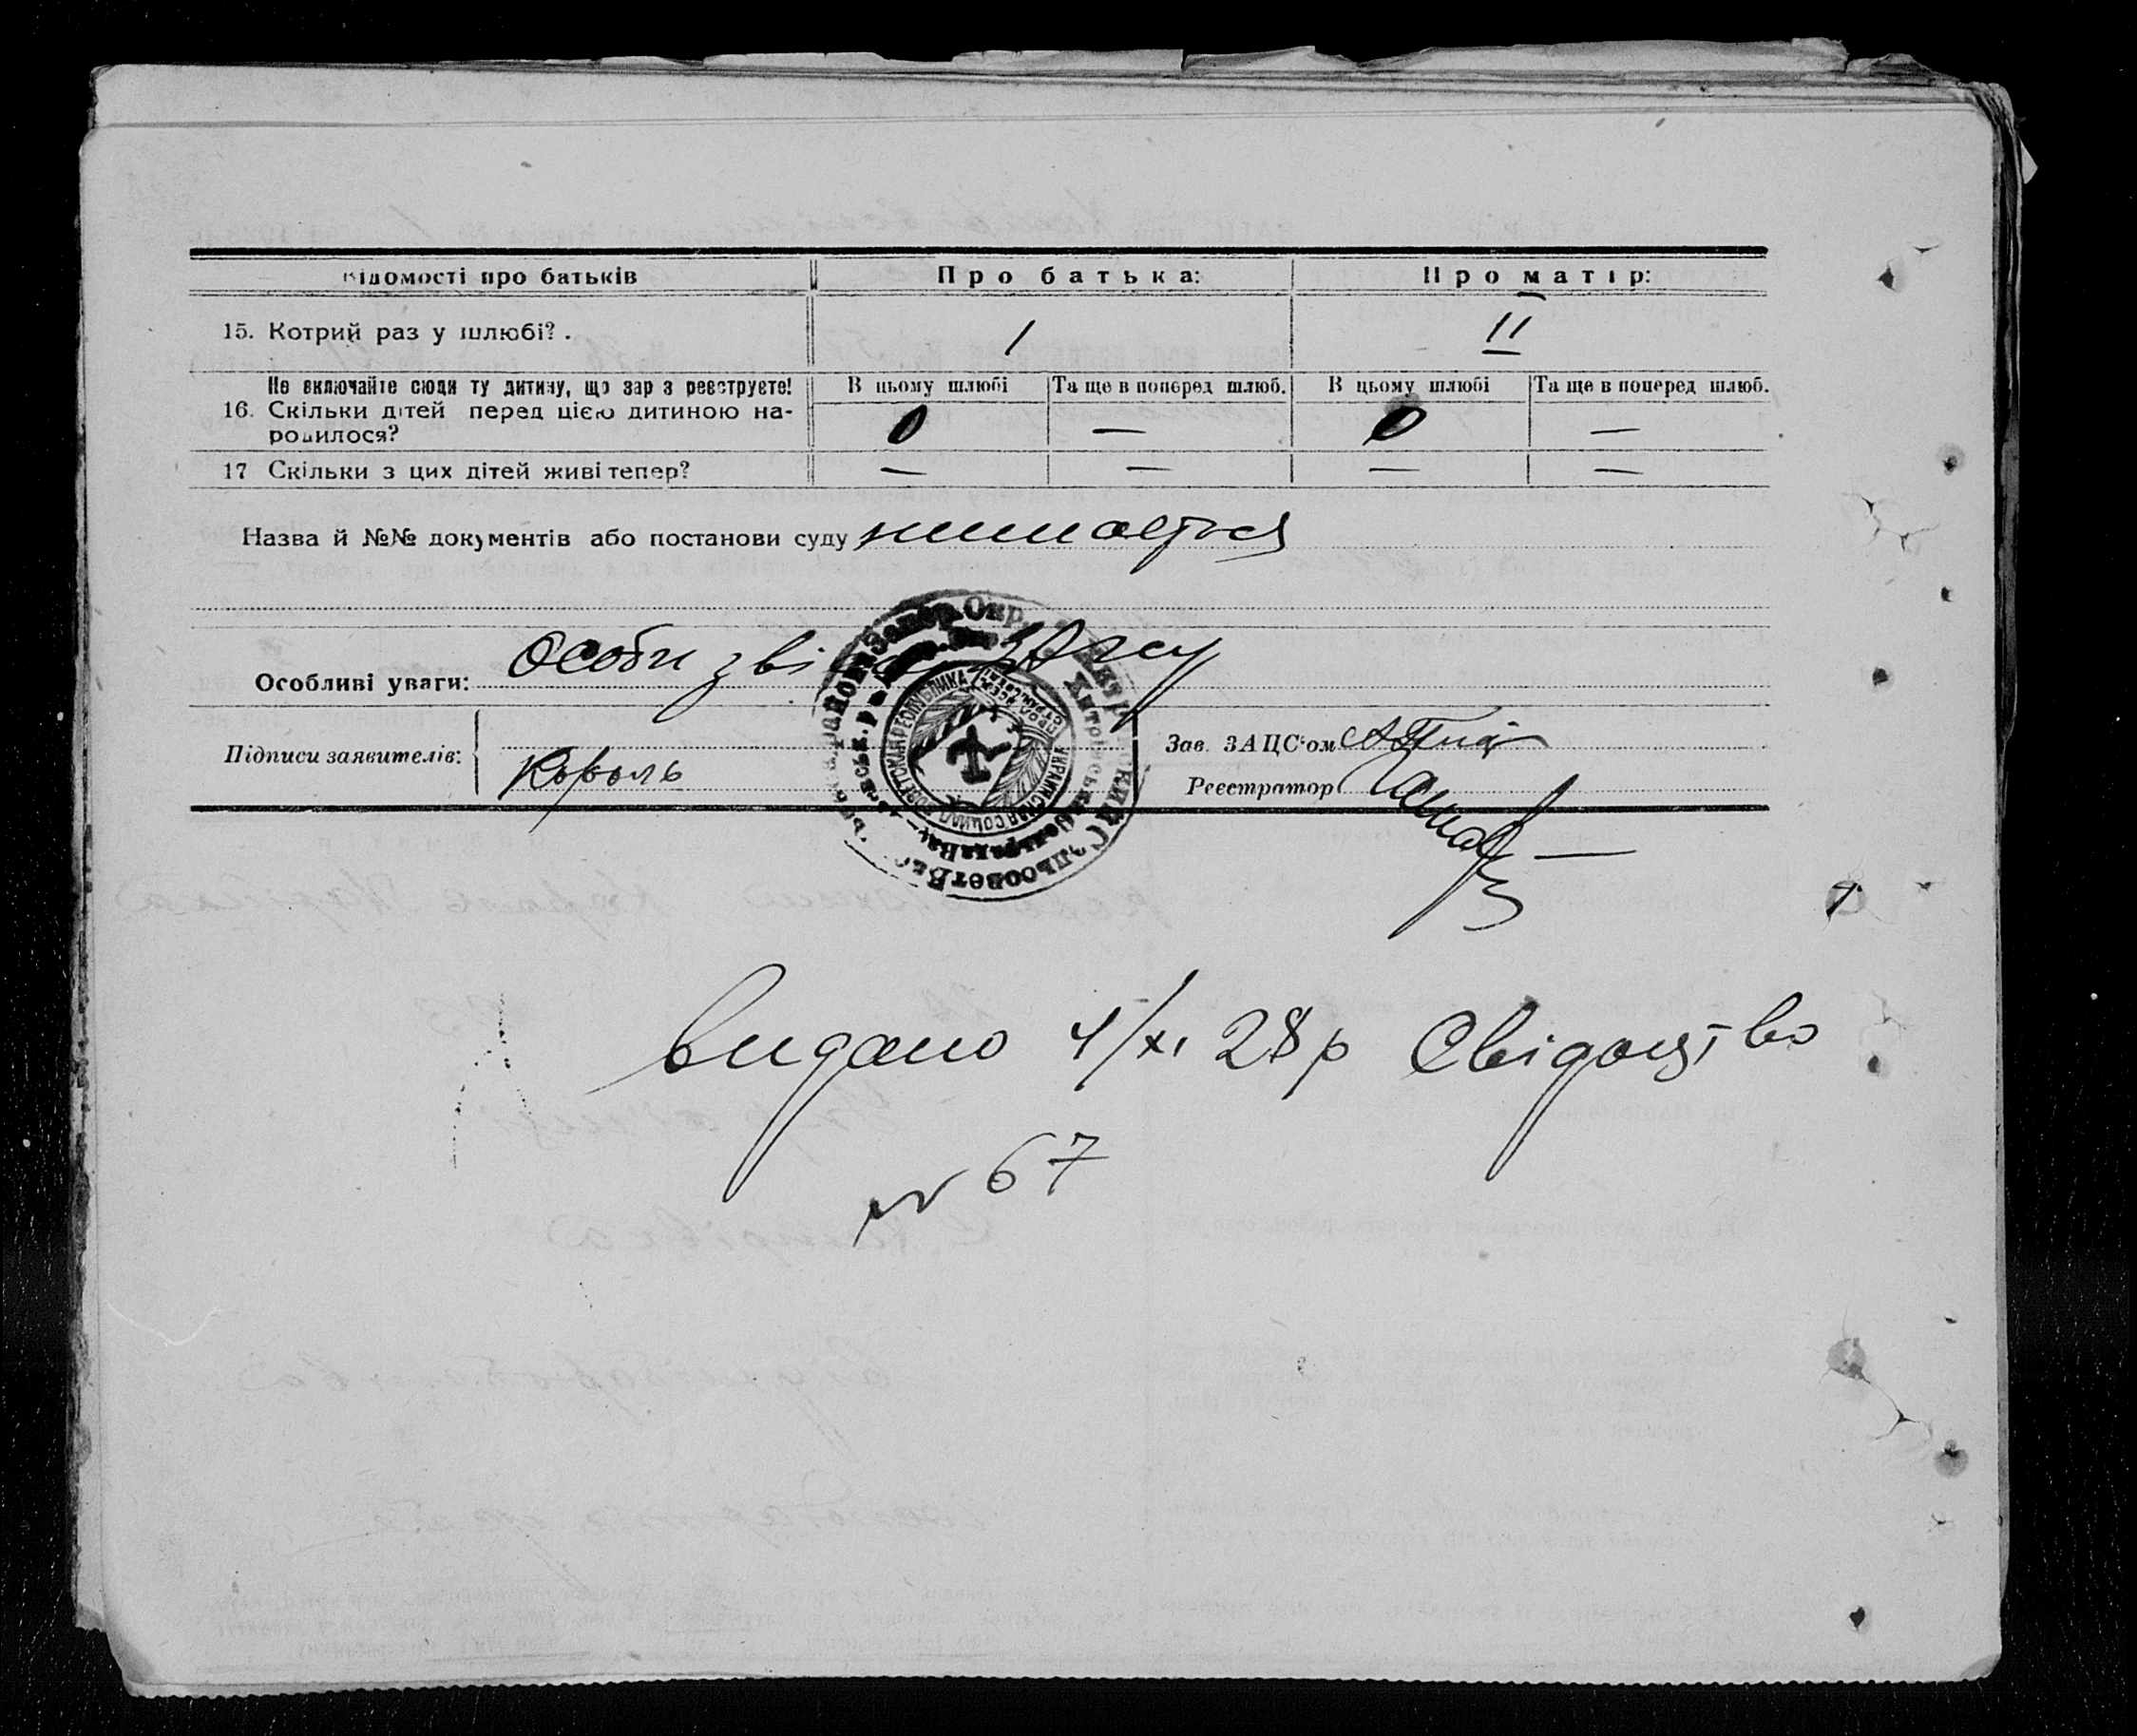 Відомості про батьків Про батька: Про матір:
15. Котрий раз у шлюбі? . I II
Не включайте сюди ту дитину, що зараз реєструєте! В цьому шлюбі Та ще в поперед шлюб. В цьому шлюбі Та ще в поперед шлюб.
16. Скільки дітей перед цією дитиною на- 0 — 0 —
родилося?
17 Скільки з цих дітей живі тепер? — — — —
Назва й №№ документів або постанови суду
Особливі уваги: Особи зві ЗАГСу
Підписи заявителів: Король
Зав. ЗАЦС'ом
Реєстратор
УКРАИНСКАЯ СОЦИАЛ СОВЕТСКАЯ РЕСПУБЛИКА
видано 4/XI 28 р Свідоцтво
№ 67